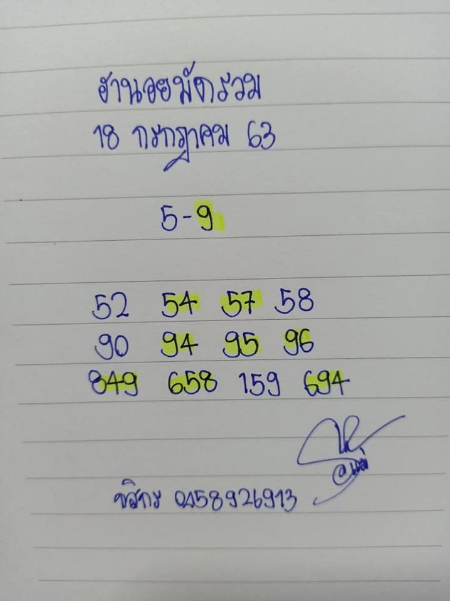 ฮานอยมัดรวม
18 กรกฎาคม 63
5-9
52 54 57 58
90 94 95 96
849 658 159 694
0458926913